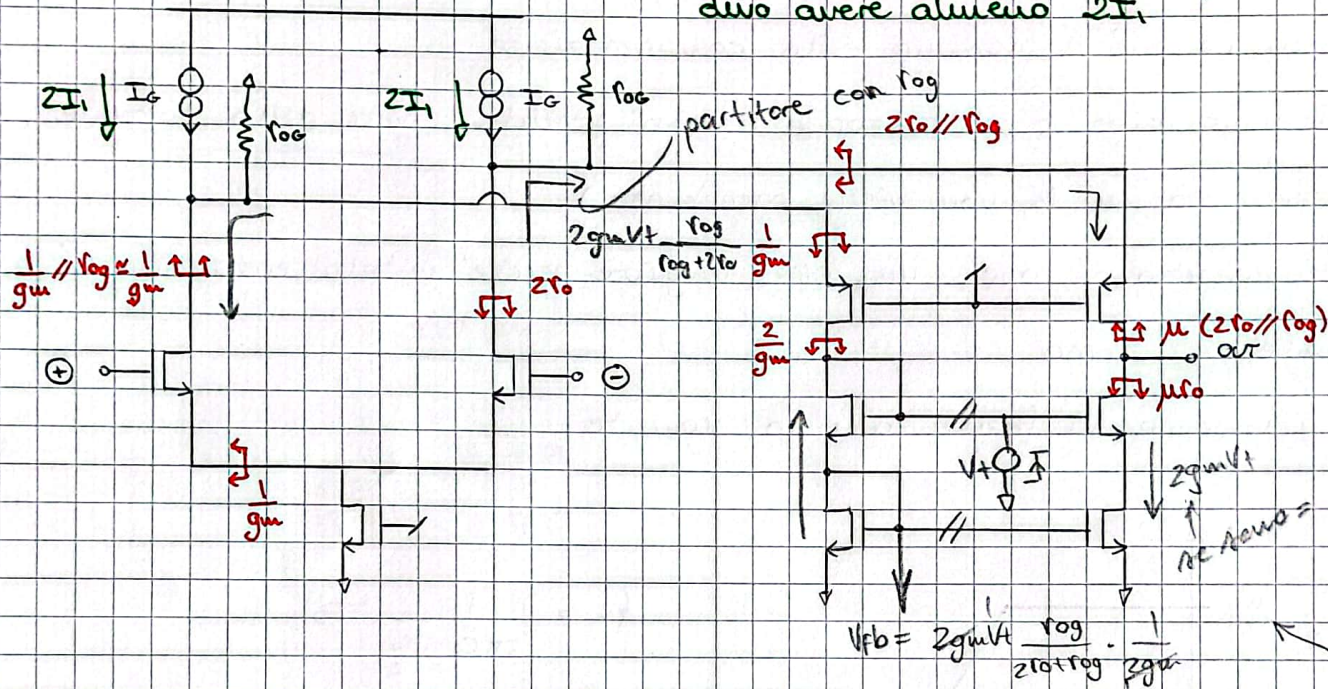 devo avere almeno 2I₁
2I₁ IG roG
2I₁ IG roG
partitore con rog
2ro // rog
1/gm // rog ≃ 1/gm
2gmVt rog/(rog+2ro)
1/gm
2ro
2/gm
μ (2ro // rog)
OUT
μro
+
−
//
Vt
2gmVt
1/gm
//
Vfb = 2gmVt rog/(2ro+rog) · 1/2gm